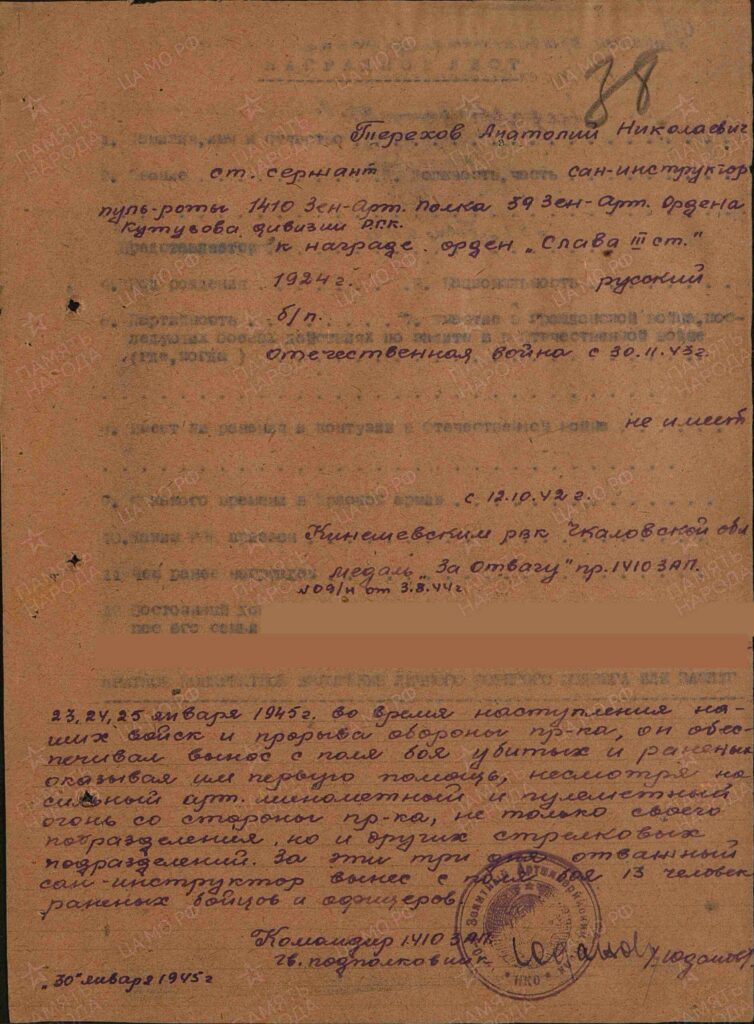 НАГРАДНОЙ ЛИСТ
38
1. Фамилия, имя и отчество Терехов Анатолий Николаевич
2. Звание ст. сержант 3. Должность, часть сан-инструктор
пуль-роты 1410 Зен-Арт. Полка 39 Зен-Арт. Ордена
Кутузова дивизии РГК.
Представляется к награде орден „Слава III ст."
4. Год рождения 1924 г. 5. Национальность русский
6. Партийность б/п. 7. Участие в гражданской войне, пос-
ледующих боевых действиях по защите и в отечественной войне
(где, когда) Отечественная война с 30.11.43 г.
8. Имеет ли ранения и контузии в отечественной войне не имеет
9. С какого времени в Красной армии с 12.10.42 г.
10. Каким РВК призван Кинешевским рвк Чкаловской обл
11. Чем ранее награжден Медаль „За Отвагу" пр. 1410 ЗАП.
№09/н от 3.8.44 г.
12. Постоянный
его семьи
23, 24, 25 января 1945 г. во время наступления на-
ших войск и прорыва обороны пр-ка, он обес-
печивал вынос с поля боя убитых и раненых
оказывая им первую помощь, несмотря на
сильный арт. минометный и пулеметный
огонь со стороны пр-ка, не только своего
подразделения, но и других стрелковых
подразделений. За эти три дня отважный
сан-инструктор вынес с поля боя 13 человек
раненых бойцов и офицеров.
Командир 1410 ЗАП.
гв. подполковник /Юданов/
„30" января 1945 г
НКО
ПАМЯТЬ НАРОДА
ЦАМО.РФ